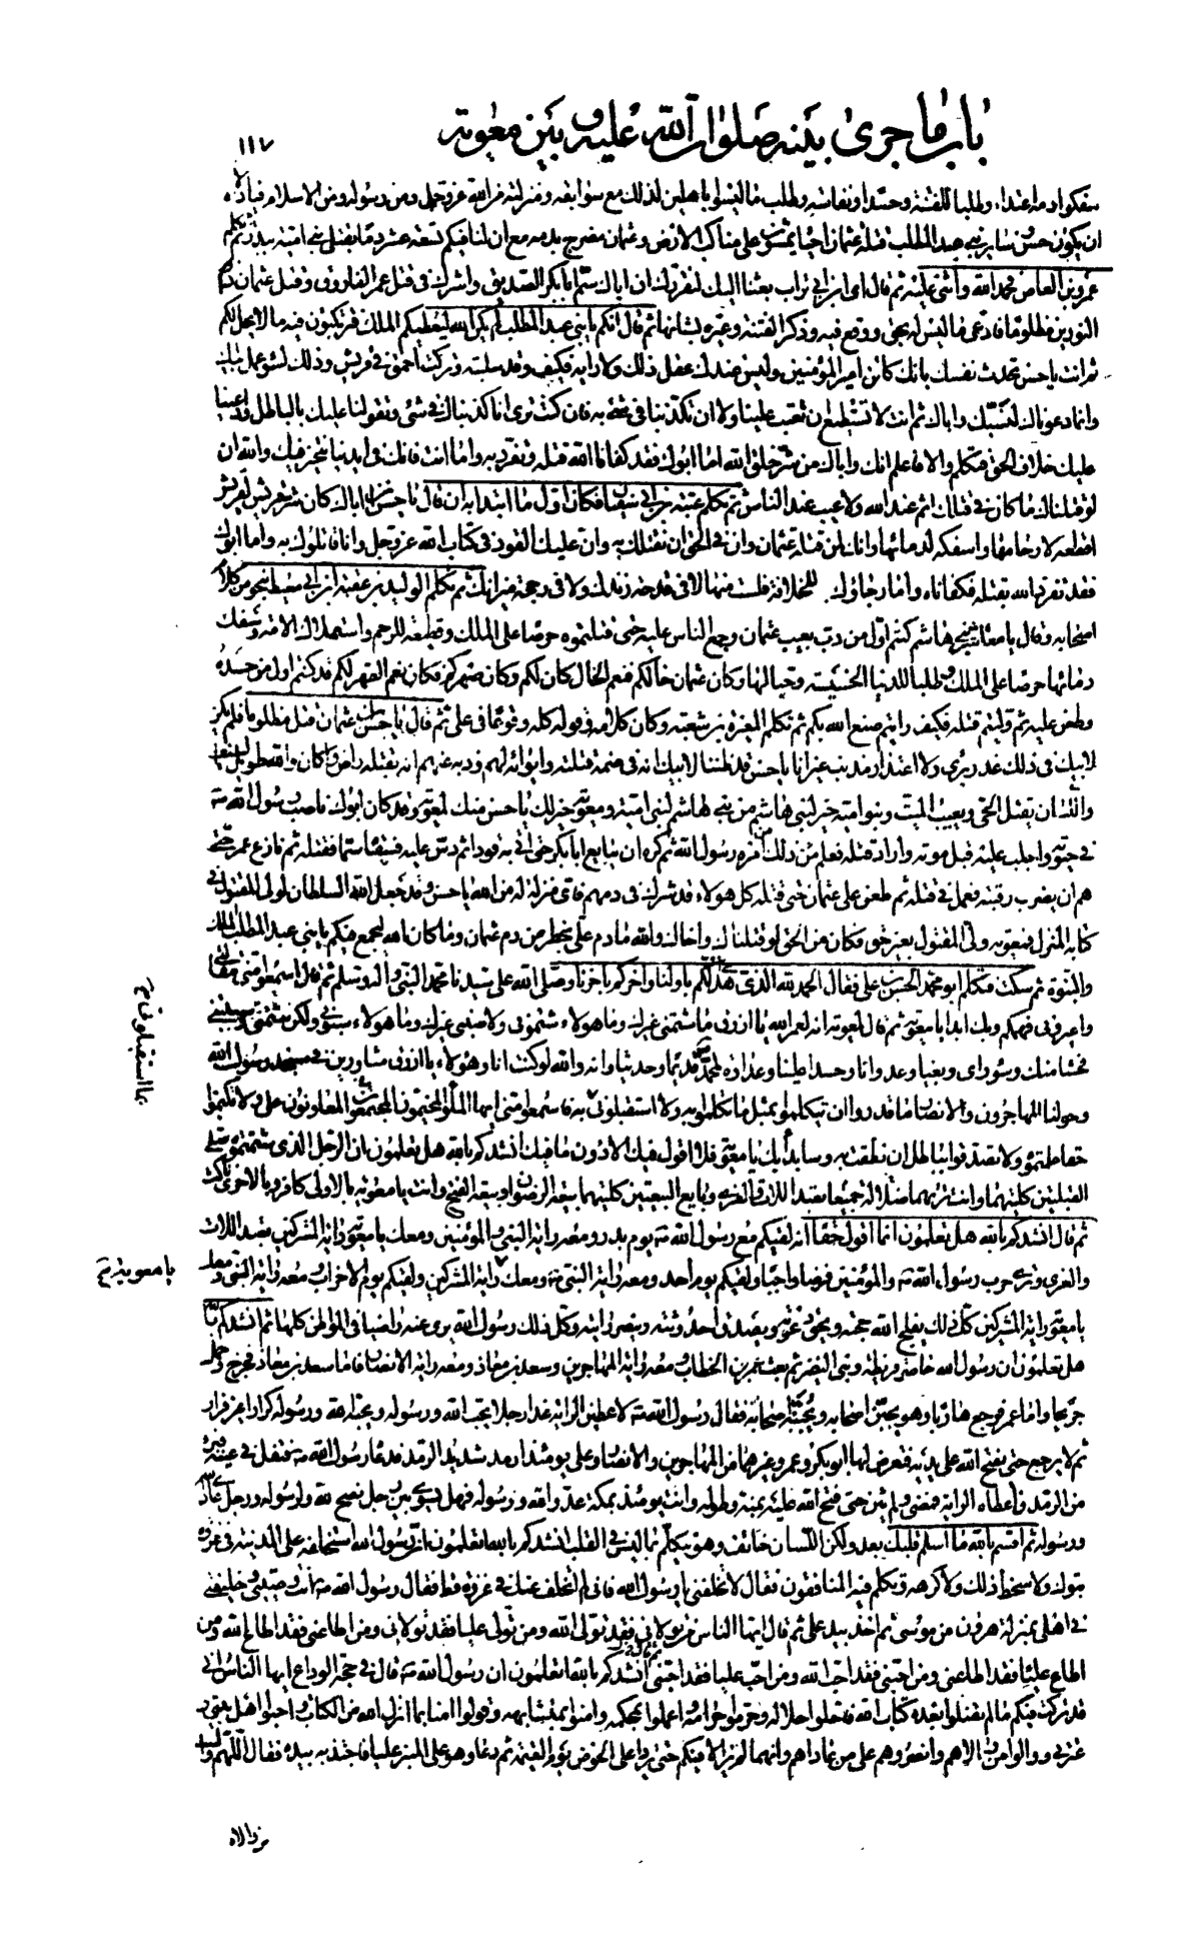 باب ما جرى بينه صلوات الله عليه وبين معوية
١١٧
سفكوا دمه اعتداء وطلبا للفتنة وحسدا ونفاسة وطلب ما ليسوا باهلين لذلك مع سوابقه ومنزلته من الله عز وجل ومن رسوله ومن الاسلام فيا ذلاه
ان يكون حسن وساير بني عبد المطلب قتلة عثمان احياء يمشون على مناكب الارض وعثمان مضرج بدمه مع ان لنا فيكم تسعة عشر دما بقتلى بني امية ببدر ثم تكلم
عمرو بن العاص فحمد الله واثنى عليه ثم قال اي ابن ابي تراب بعثنا اليك لنقررك ان اباك سم ابا بكر الصديق واشرك في قتل عمر الفاروق وقتل عثمان ذا
النورين مظلوما فادعى ما ليس له بحق ووقع فيه وذكر الفتنة وعيره بشانها ثم قال انكم يا بني عبد المطلب لم يكن الله ليعطيكم الملك فتركبون فيه ما لا يحل لكم
ثم انت يا حسن تحدث نفسك بانك كائن امير المؤمنين وليس عندك عقل ذلك ولا رايه فكيف وقد سلبته وتركت احمق في قريش وذلك لسوء عمل ابيك
وانما دعوناك لنسبك واباك ثم انت لا تستطيع ان تعتب علينا ولا ان تكذبنا في شئ به فان كنت ترى انا كذبناك في شئ وتقولنا عليك بالباطل وادعينا
عليك خلاف الحق فتكلم والا فاعلم انك واباك من شر خلق الله اما ابوك فقد كفانا الله قتله وتفرد به واما انت فانك في ايدينا نتخير فيك والله ان
لو قتلناك ما كان في قتلك اثم عند الله ولا عيب عند الناس ثم تكلم عتبة بن ابي سفيان فكان اول ما ابتدا به ان قال يا حسن ان اباك كان شر قريش لقريش
اقطعه لارحامها واسفكه لدمائها وانك لمن قتلة عثمان وان في الحق ان نقتلك به وان عليك القود في كتاب الله عز وجل وانا قاتلوك به واما ابوك
فقد تفرد الله بقتله فكفاناه واما رجاؤك للخلافة فلست منها لا في قدحة زندك ولا في رجحة ميزانك ثم تكلم الوليد بن عقبة بن ابي معيط بنحو من كلام
اصحابه وقال يا معاشر بني هاشم كنتم اول من دب بعيب عثمان وجمع الناس عليه حتى قتلتموه حرصا على الملك وقطيعة للرحم واستهلاك الامة وسفك
دمائها حرصا على الملك وطلبا للدنيا الخسيسة وحبا لها وكان عثمان خالكم فنعم الخال كان لكم وكان صهركم فكان نعم الصهر لكم قد كنتم اول من حسده
وطعن عليه ثم وليتم قتله فكيف رايتم صنع الله بكم ثم تكلم المغيرة بن شعبة وكان كلامه وقوله كله وقوعا في علي ثم قال يا حسن ان عثمان قتل مظلوما فلم يكن
لابيك في ذلك عذر بري ولا اعتذار مذنب غير انا يا حسن قد ظننا لابيك انه في ضمه قتلته وايوائه لهم وذبه عنهم انه بقتله راض وكان والله طويل السيف
واللسان يقتل الحي ويعيب الميت وبنو امية خير لبني هاشم من بني هاشم لبني امية ومعوية خير لك يا حسن منك لمعوية وقد كان ابوك ناصب رسول الله ص
في حيوته واجلب عليه قبل موته واراد قتله فعلم ذلك من امره رسول الله ثم كره ان يبايع ابا بكر حتى اتي به قودا ثم دس عليه فسقاه سما فقتله ثم نازع عمر حتى
هم ان يضرب رقبته فعمل في قتله ثم طعن على عثمان حتى قتله كل هؤلاء قد شرك في دمهم فاي منزلة له من الله يا حسن وقد جعل الله السلطان لولي المقتول في
كتابه المنزل فمعوية ولي المقتول بغير حق فكان من الحق لو قتلناك واخاك والله ما دم علي بخطر من دم عثمان وما كان الله ليجمع فيكم يا بني عبد المطلب الملك
والنبوة ثم سكت فتكلم ابو محمد الحسن بن علي فقال الحمد لله الذي هدى اولكم باولنا واخركم باخرنا وصلى الله على سيدنا محمد النبي واله وسلم ثم قال اسمعوا مني مقالتي
واعيروني فهمكم وبك ابدا يا معوية ثم قال لمعوية انه لعمر الله يا ازرق ما شتمني غيرك وما هؤلاء شتموني ولا سبني غيرك وما هؤلاء سبوني ولكن شتمتني وسببتني
فحشا منك وسوء راي وبغيا وعدوانا وحسدا علينا وعداوة لمحمد ص قديما وحديثا وانه والله لو كنت انا وهؤلاء يا ازرق مثاورين في مسجد رسول الله
وحولنا المهاجرون والانصار ما قدروا ان يتكلموا بمثل ما تكلموا به ولا استقبلوني به فاسمعوا مني ايها الملأ المخيمون المجتمعون المعاونون علي ولا تكتموا
حقا علمتموه ولا تصدقوا بباطل ان نطقت به وسابدأ بك يا معوية فلا اقول فيك الا دون ما فيك انشدكم بالله هل تعلمون ان الرجل الذي شتمتموه صلى
القبلتين كلتيهما وانت تراهما ضلالة جميعا تعبد اللات والعزى وبايع البيعتين كلتيهما بيعة الرضوان وبيعة الفتح وانت يا معوية بالاولى كافر وبالاخرى ناكث
ثم قال انشدكم بالله هل تعلمون انما اقول حقا انه لقيكم مع رسول الله ص يوم بدر ومعه راية النبي والمؤمنين ومعك يا معوية راية المشركين تعبد اللات
والعزى وترى حرب رسول الله ص والمؤمنين فرضا واجبا ولقيكم يوم احد ومعه راية النبي ص ومعك راية المشركين ولقيكم يوم الاحزاب ومعه راية النبي ومعك
يا معوية راية المشركين كل ذلك يفلج الله حجته ويحق دعوته ويصدق احدوثته وينصر رايته وكل ذلك رسول الله يرى عنه راضيا في المواطن كلها ثم انشدكم بالله
هل تعلمون ان رسول الله حاصر قريظة وبني النضير ثم بعث عمر بن الخطاب ومعه راية المهاجرين وسعد بن معاذ ومعه راية الانصار فاما سعد بن معاذ فخرج وحمل
جريحا واما عمر فرجع هاربا وهو يجبن اصحابه ويجبنه اصحابه فقال رسول الله ص لاعطين الراية غدا رجلا يحب الله ورسوله ويحبه الله ورسوله كرار غير فرار
ثم لا يرجع حتى يفتح الله على يديه فتعرض لها ابو بكر وعمر وغيرهما من المهاجرين والانصار وعلي يومئذ ارمد شديد الرمد فدعاه رسول الله ص فتفل في عينيه فبرئ
من الرمد واعطاه الراية فمضى ولم يثن حتى فتح الله عليه بمنه وطوله وانت يومئذ بمكة عدو الله ورسوله فهل يسوى بين رجل نصح لله ولرسوله ورجل عادى الله
ورسوله ثم اقسم بالله ما اسلم قلبك بعد ولكن اللسان خائف وهو يتكلم بما ليس في القلب انشدكم بالله اتعلمون ان رسول الله استخلفه على المدينة في غزوة
تبوك ولا سخط ذلك ولا كرهه وتكلم فيه المنافقون فقال لا تخلفني يا رسول الله فاني لم اتخلف عنك في غزوة قط فقال رسول الله ص انت وصيي وخليفتي
في اهلي بمنزلة هرون من موسى ثم اخذ بيد علي ثم قال ايها الناس من تولاني فقد تولى الله ومن تولى عليا فقد تولاني ومن اطاعني فقد اطاع الله ومن
اطاع عليا فقد اطاعني ومن احبني فقد احب الله ومن احب عليا فقد احبني ثم قال انشدكم بالله اتعلمون ان رسول الله ص قال في حجة الوداع ايها الناس اني
قد تركت فيكم ما لم تضلوا بعده كتاب الله فاحلوا حلاله وحرموا حرامه واعملوا بمحكمه وامنوا بمتشابهه وقولوا امنا بما انزل الله من الكتاب واحبوا اهل بيتي و
عترتي ووالوا من والاهم وانصروهم على من عاداهم وانهما لم يزالا فيكم حتى يردا علي الحوض يوم القيمة ثم دعا وهو على المنبر عليا فاجتذبه بيده فقال اللهم وال
من والاه
بما استقبلوني خ
يا معوية خ